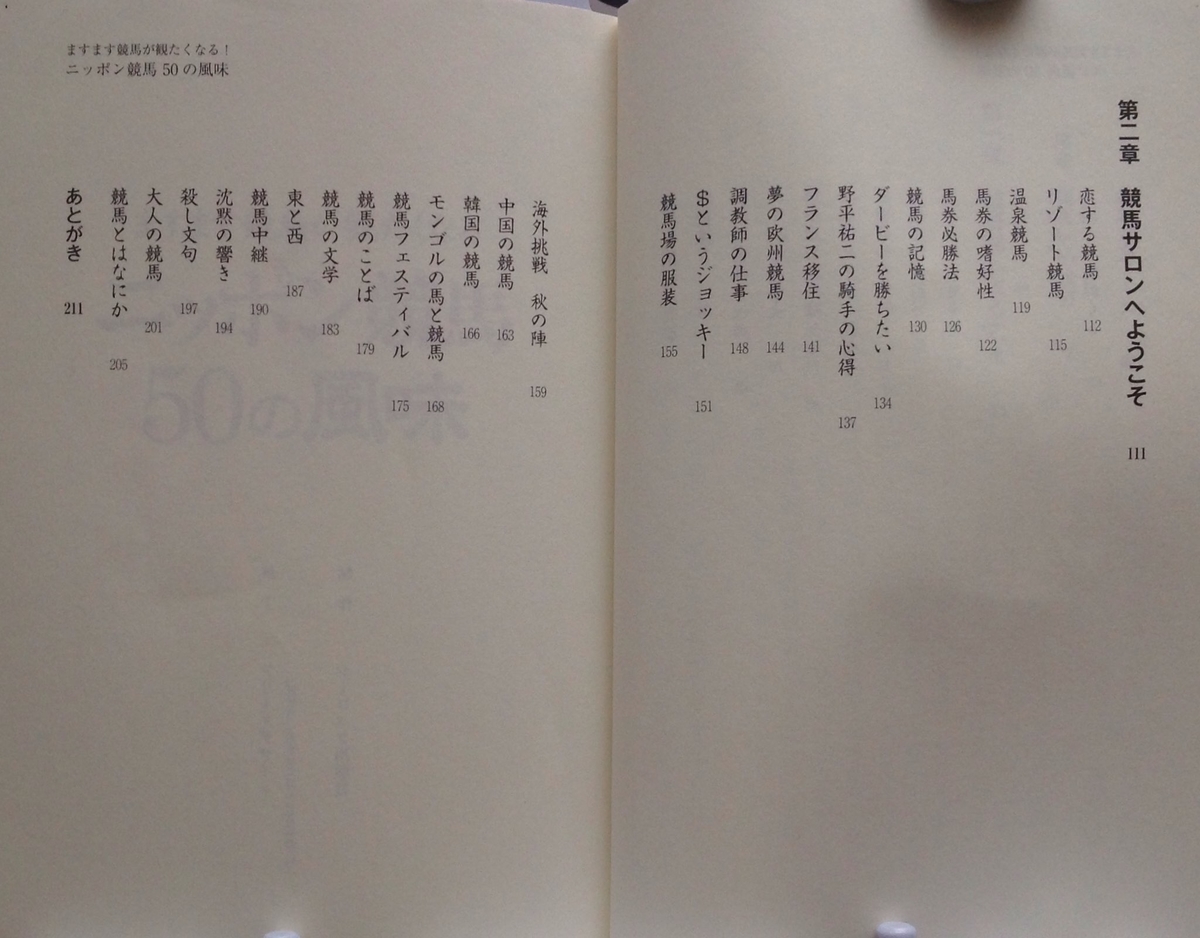 第二章 競馬サロンへようこそ 111
恋する競馬 112
リゾート競馬 115
温泉競馬 119
馬券の嗜好性 122
馬券必勝法 126
競馬の記憶 130
ダービーを勝ちたい 134
野平祐二の騎手の心得 137
フランス移住 141
夢の欧州競馬 144
調教師の仕事 148
$というジョッキー 151
競馬場の服装 155
海外挑戦 秋の陣 159
中国の競馬 163
韓国の競馬 166
モンゴルの馬と競馬 168
競馬フェスティバル 175
競馬のことば 179
競馬の文学 183
東と西 187
競馬中継 190
沈黙の響き 194
殺し文句 197
大人の競馬 201
競馬とはなにか 205
あとがき 211
ますます競馬が観たくなる!
ニッポン競馬 50 の風味